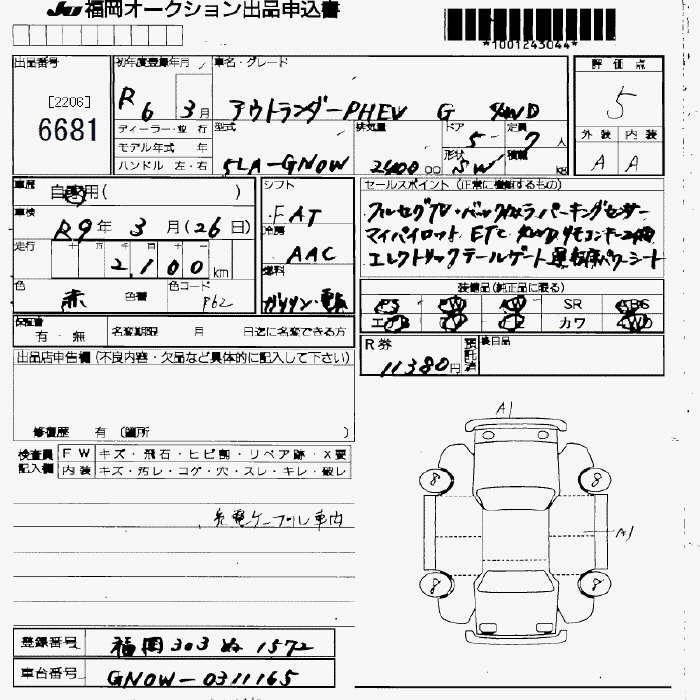 JU福岡オークション出品申込書
*1001243044*
出品番号
[2206]
6681
初年度登録年月
R6 3月
車名・グレード
アウトランダーPHEV G 4WD
評価点
5
外装 内装
A A
ディーラー・並行
モデル年式 年
ハンドル 左・右
型式
5LA-GN0W
排気量
2400 cc
ドア
5
定員
7人
形状
SW
積載
kg
車歴
自家用( )
車検
R9年 3月(26日)
走行
十 万 千 百 十 一
2,100 km
色
赤
色替
色コード
P62
シフト
FAT
冷房
AAC
燃料
ガソリン・電気
セールスポイント (正常に機能するもの)
フルセグTV・バックカメラ パーキングセンサー
マイパイロット ETC 4WD リモコンキー2個
エレクトリックテールゲート 運転席パワーシート
装備品(純正品に限る)
PS PW AW SR ABS
カワ 4WD
保証書
有・無
名変期限 月 日迄に名変できる方
R券
11380円
預託済
後日品
出品店申告欄 (不良内容・欠品など具体的に記入して下さい)
修復歴 有 (箇所 )
検査員記入欄
FW キズ・飛石・ヒビ割・リペア跡・X要
内装 キズ・汚レ・コゲ・穴・スレ・キレ・破レ
充電ケーブル車内
A1
8 8
A1
8 8
登録番号 福岡303ぬ1572
車台番号 GN0W-0311165